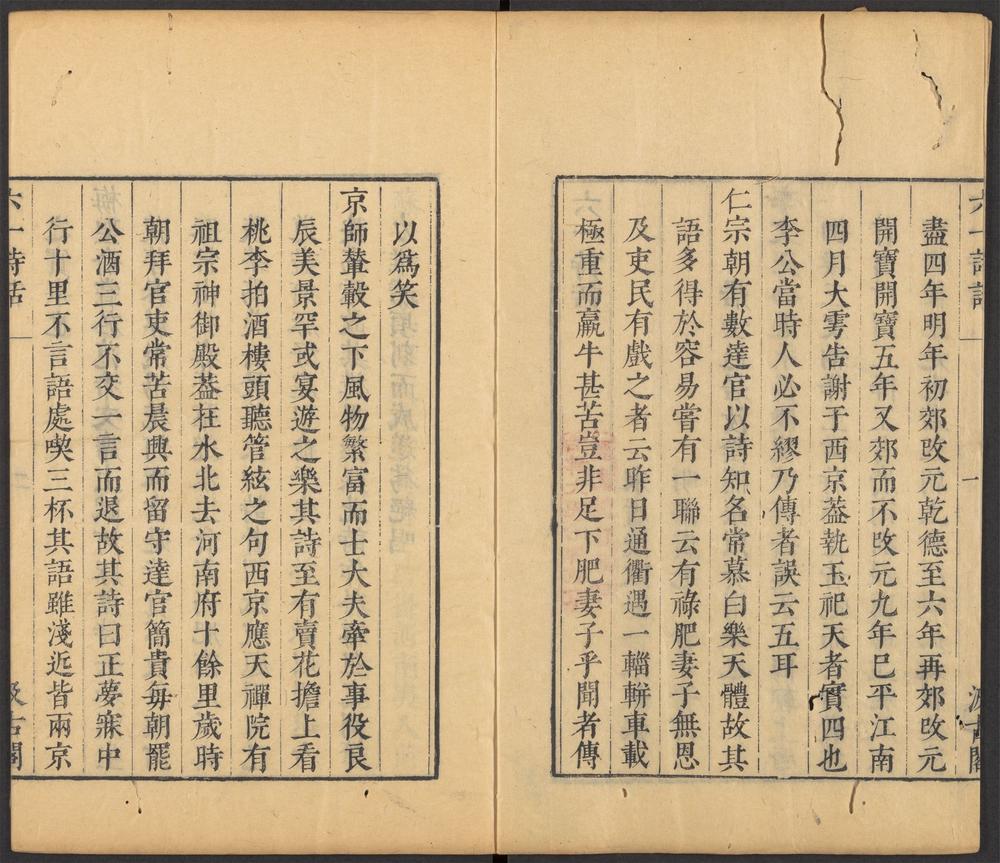 六一詩話
一
汲古閣
盡四年明年初郊改元乾德至六年再郊改元
開寶開寶五年又郊而不改元九年已平江南
四月大雩告謝于西京葢執玉祀天者實四也
李公當時人必不繆乃傳者誤云五耳
仁宗朝有數達官以詩知名常慕白樂天體故其
語多得於容易嘗有一聯云有祿肥妻子無恩
及吏民有戲之者云昨日通衢遇一輜軿車載
極重而羸牛甚苦豈非足下肥妻子乎聞者傳
以爲笑
京師輦轂之下風物繁富而士大夫牽於事役良
辰美景罕或宴遊之樂其詩至有賣花擔上看
桃李拍酒樓頭聽管絃之句西京應天禪院有
祖宗神御殿葢在水北去河南府十餘里歲時
朝拜官吏常苦晨興而留守達官簡貴每朝罷
公酒三行不交一言而退故其詩曰正夢寐中
行十里不言語處喫三杯其語雖淺近皆兩京
六一詩話
汲古閣